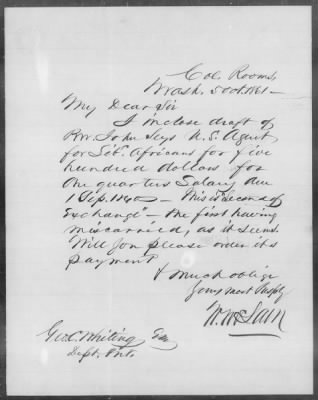 Col. Rooms,
Wash. 5 Oct. 1861 –
My Dear Sir
I inclose draft of
Rev. John Seys U.S. Agent
for Lib. Africans for five
hundred dollars for
One quarters Salary due
1 Sep. 1860 – This is "Second of
Exchange" – the first having
miscarried, as it seems.
Will you please order its
payment
& much oblige
Yours most Respfy
W. McLain
Geo. C. Whiting Esq
Dept. Int.